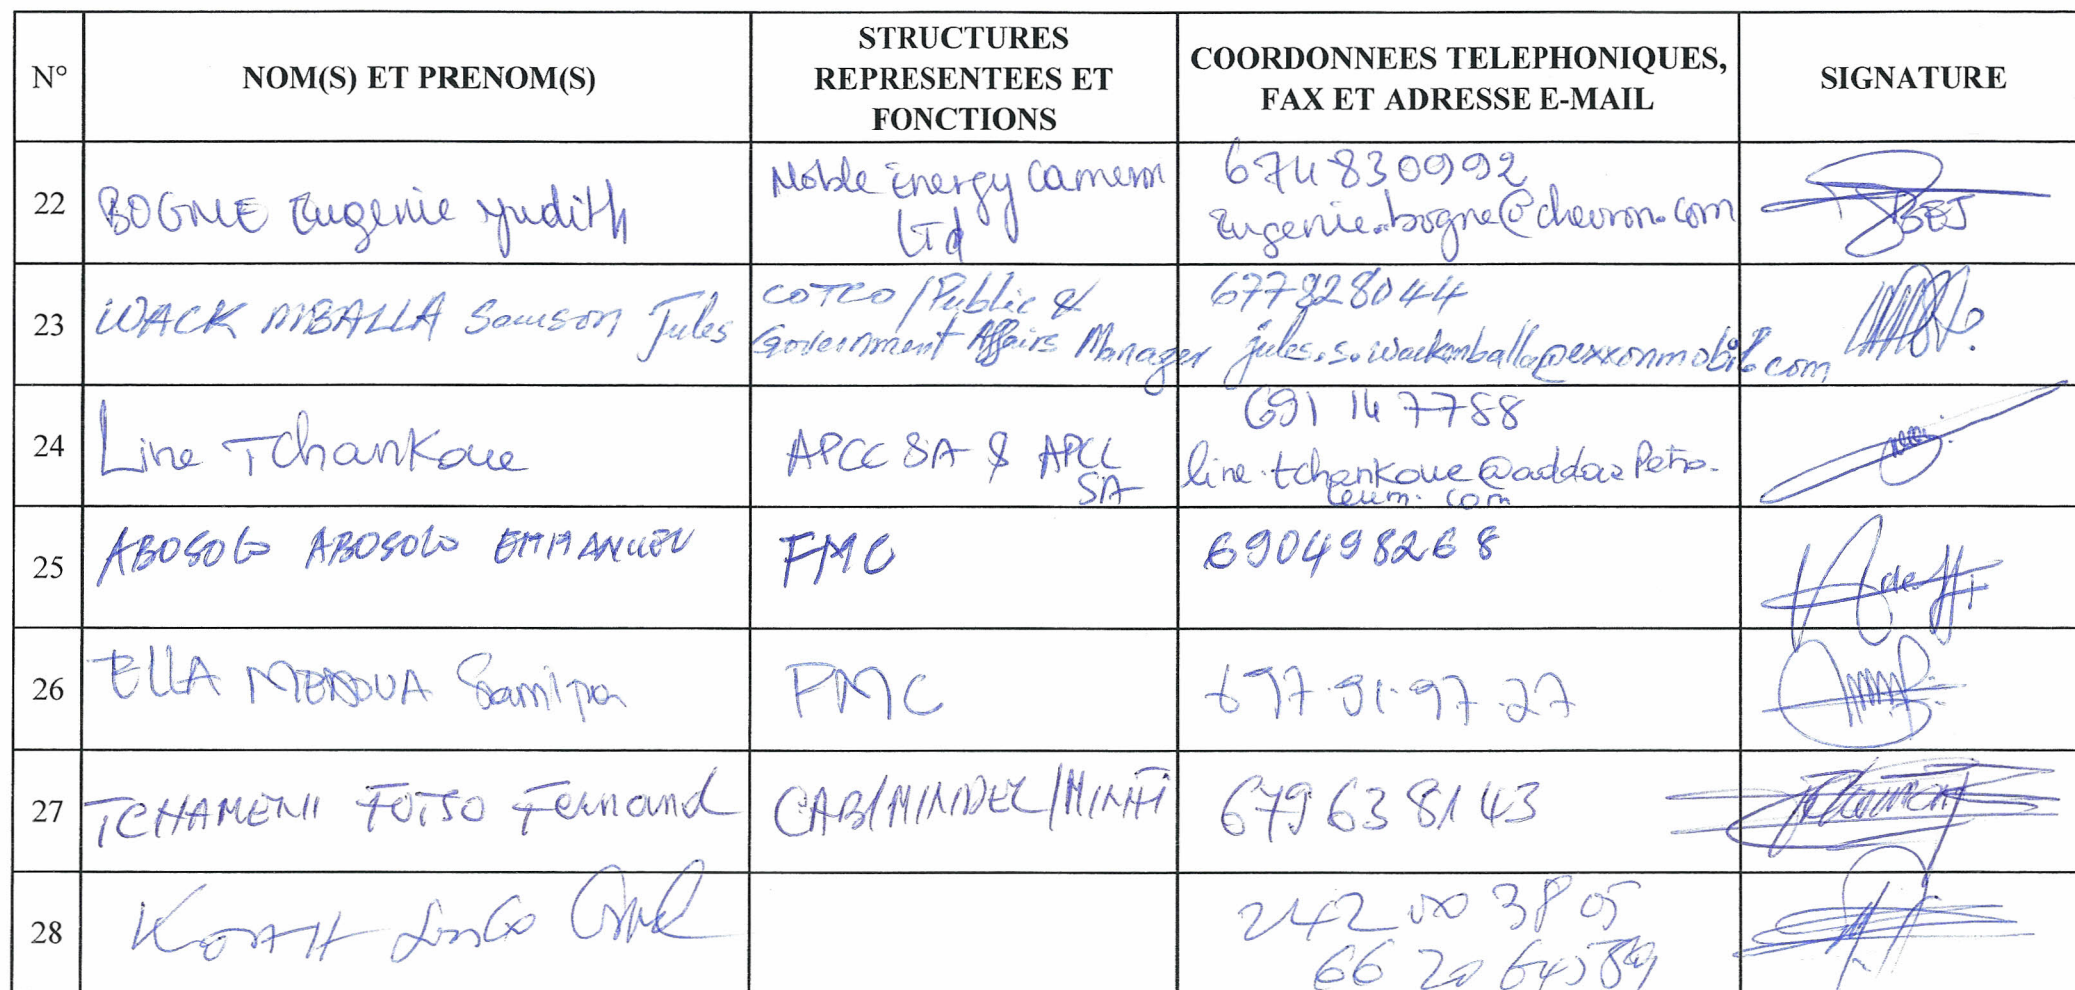 N°
NOM(S) ET PRENOM(S)
STRUCTURES
REPRESENTEES ET
FONCTIONS
COORDONNEES TELEPHONIQUES,
FAX ET ADRESSE E-MAIL
SIGNATURE
22
BOGNE Eugenie Judith
Noble Energy Cameroon
Ltd
674830992
eugenie.bogne@chevron.com
BEJ
23
WACK MBALLA Samson Jules
COTCO / Public &
Government Affairs Manager
677828044
jules.s.wackmballa@exxonmobil.com
24
Line Tchankoue
APCC SA & APCL
SA
691 14 7788
line.tchankoue@addaxPetro-
leum.com
25
ABOSOLO ABOSOLO EMMANUEL
FMC
690498268
26
ELLA
FMC
697.91.97.27
27
TCHAMENI FOTSO Fernand
679638143
28
242 00 38 05
66 20